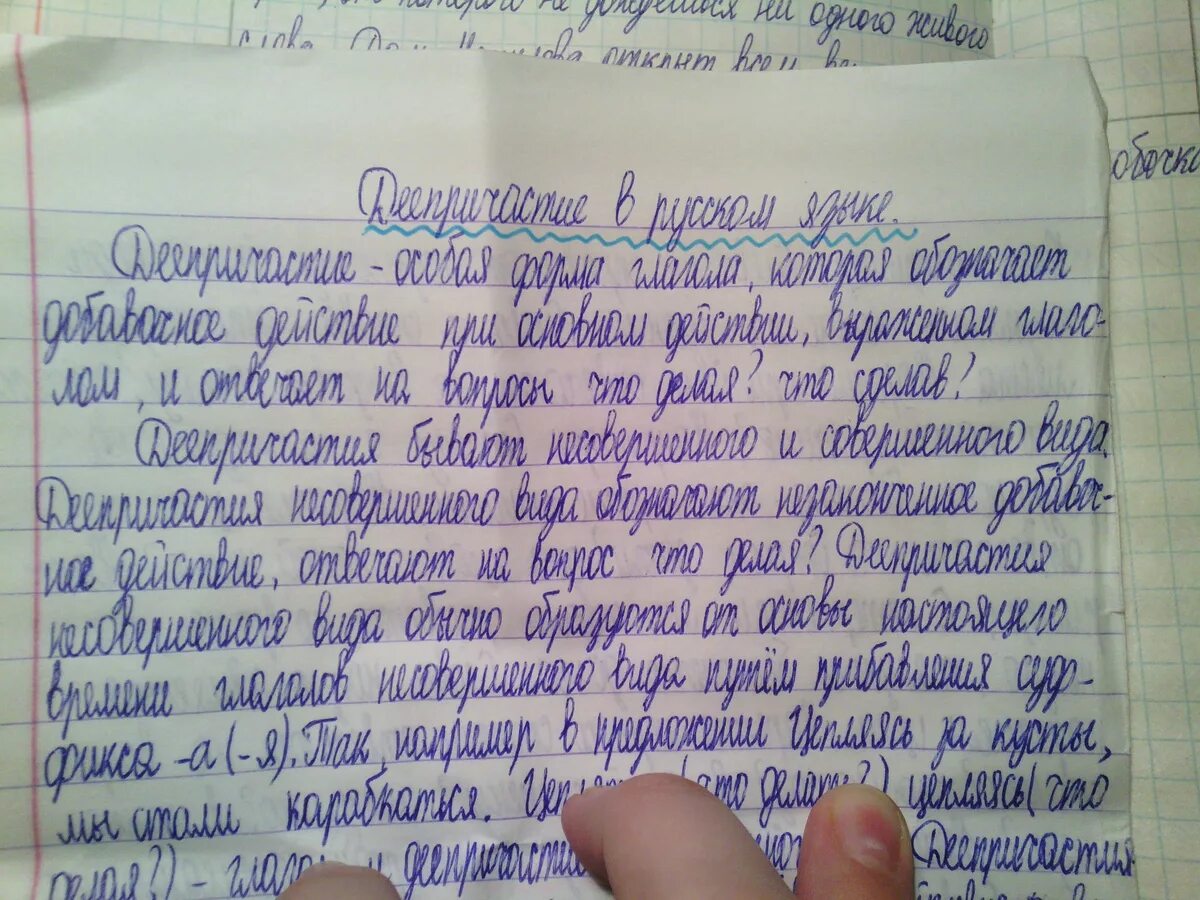 которого не дождёшься ни одного живого
слова. открыт всем
Деепричастие в русском языке.
Деепричастие - особая форма глагола, которая обозначает
добавочное действие при основном действии, выраженном глаго-
лом, и отвечает на вопросы что делая? что сделав?
Деепричастия бывают несовершенного и совершенного вида.
Деепричастия несовершенного вида обозначают незаконченное добавоч-
ное действие, отвечают на вопрос что делая? Деепричастия
несовершенного вида обычно образуются от основы настоящего
времени глаголов несовершенного вида путём прибавления суф-
фикса -а (-я). Так, например в предложении Цепляясь за кусты,
мы стали карабкаться. (что делать?) цепляясь (что
делая?) - и Деепричастия